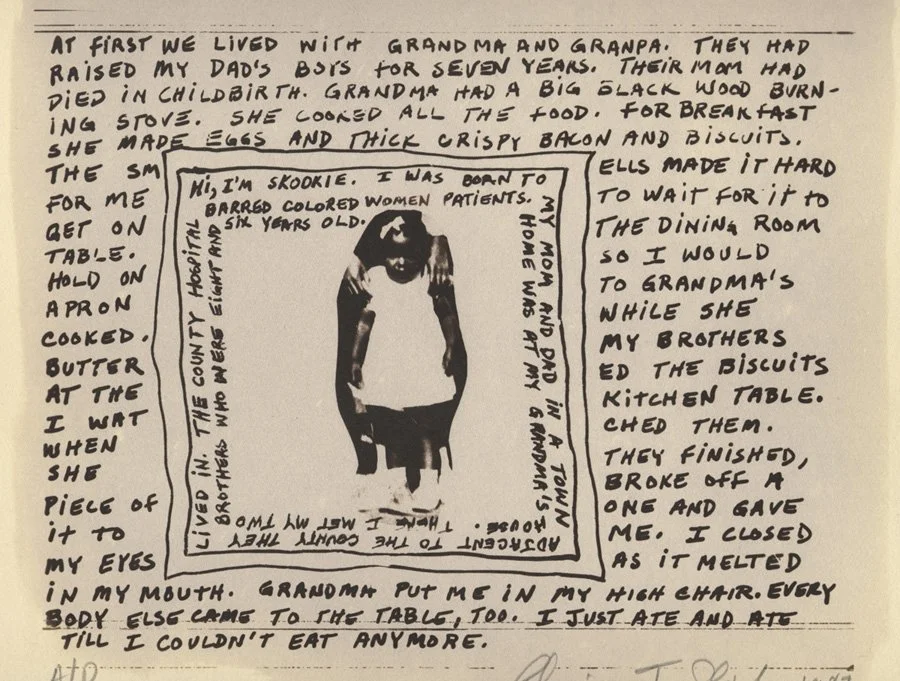 AT FIRST WE LIVED WITH GRANDMA AND GRANPA. THEY HAD
RAISED MY DAD'S BOYS FOR SEVEN YEARS. THEIR MOM HAD
DIED IN CHILDBIRTH. GRANDMA HAD A BIG BLACK WOOD BURN-
ING STOVE. SHE COOKED ALL THE FOOD. FOR BREAKFAST
SHE MADE EGGS AND THICK CRISPY BACON AND BISCUITS.
THE SMELLS MADE IT HARD
FOR ME TO WAIT FOR IT TO
GET ON THE DINING ROOM
TABLE. SO I WOULD
HOLD ON TO GRANDMA'S
APRON WHILE SHE
COOKED. MY BROTHERS
BUTTERED THE BISCUITS
AT THE KITCHEN TABLE.
I WATCHED THEM.
WHEN THEY FINISHED,
SHE BROKE OFF A
PIECE OF ONE AND GAVE
IT TO ME. I CLOSED
MY EYES AS IT MELTED
IN MY MOUTH. GRANDMA PUT ME IN MY HIGH CHAIR. EVERY
BODY ELSE CAME TO THE TABLE, TOO. I JUST ATE AND ATE
TILL I COULDN'T EAT ANYMORE.
Hi, I'M SKOOKIE. I WAS BORN TO
MY MOM AND DAD IN A TOWN
ADJACENT TO THE COUNTY THEY
LIVED IN. THE COUNTY HOSPITAL
BARRED COLORED WOMEN PATIENTS.
HOME WAS AT MY GRANDMA'S
HOUSE. THERE I MET MY TWO
BROTHERS WHO WERE EIGHT AND
SIX YEARS OLD.